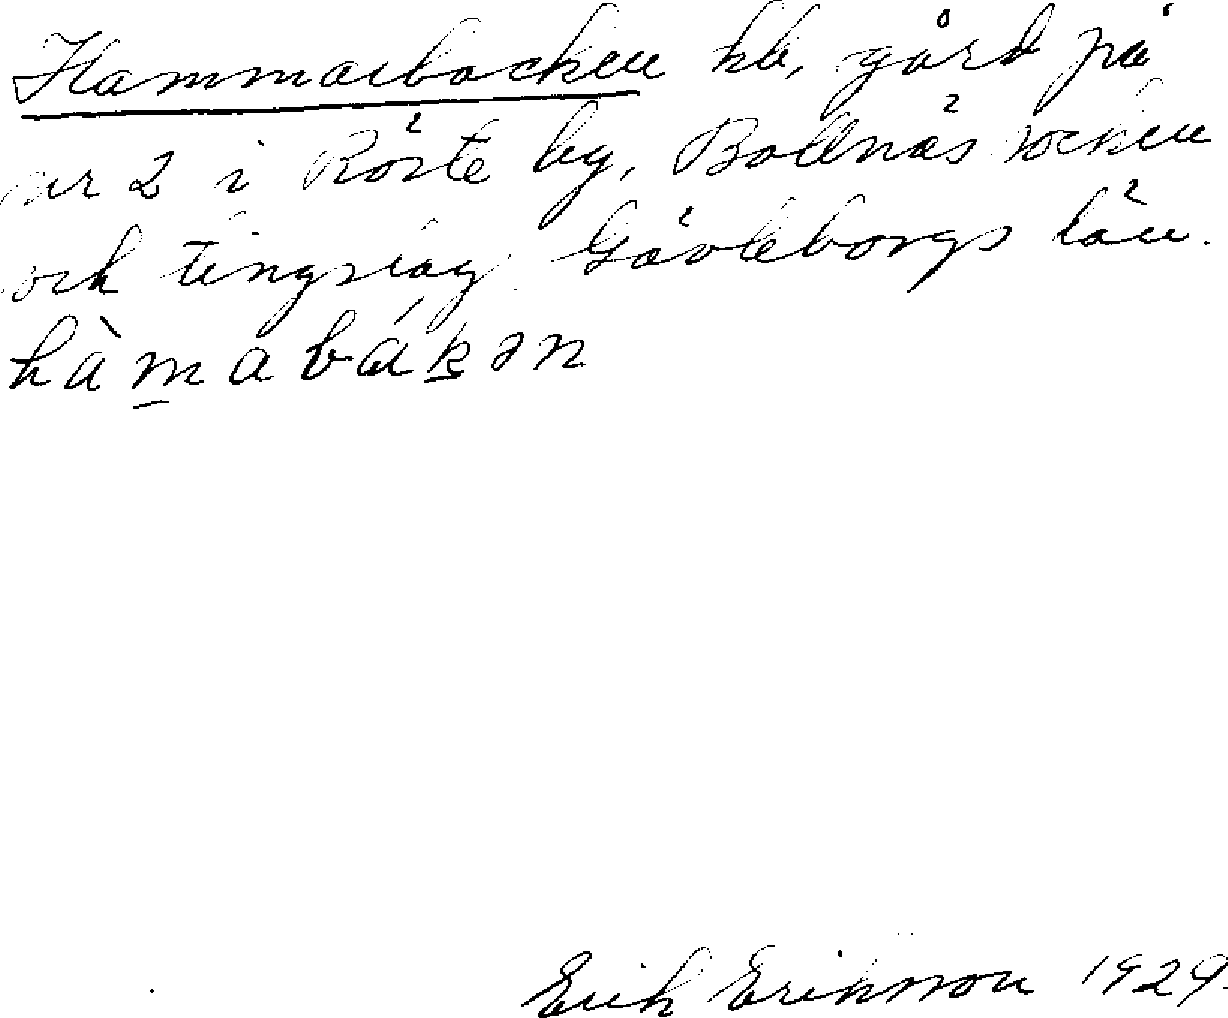 Hammarbacken hb, gård på
nr 2 i Röste by, Bollnäs socken
och tingslag. Gävleborgs län.
hàmabákən
Erik Eriksson 1929.